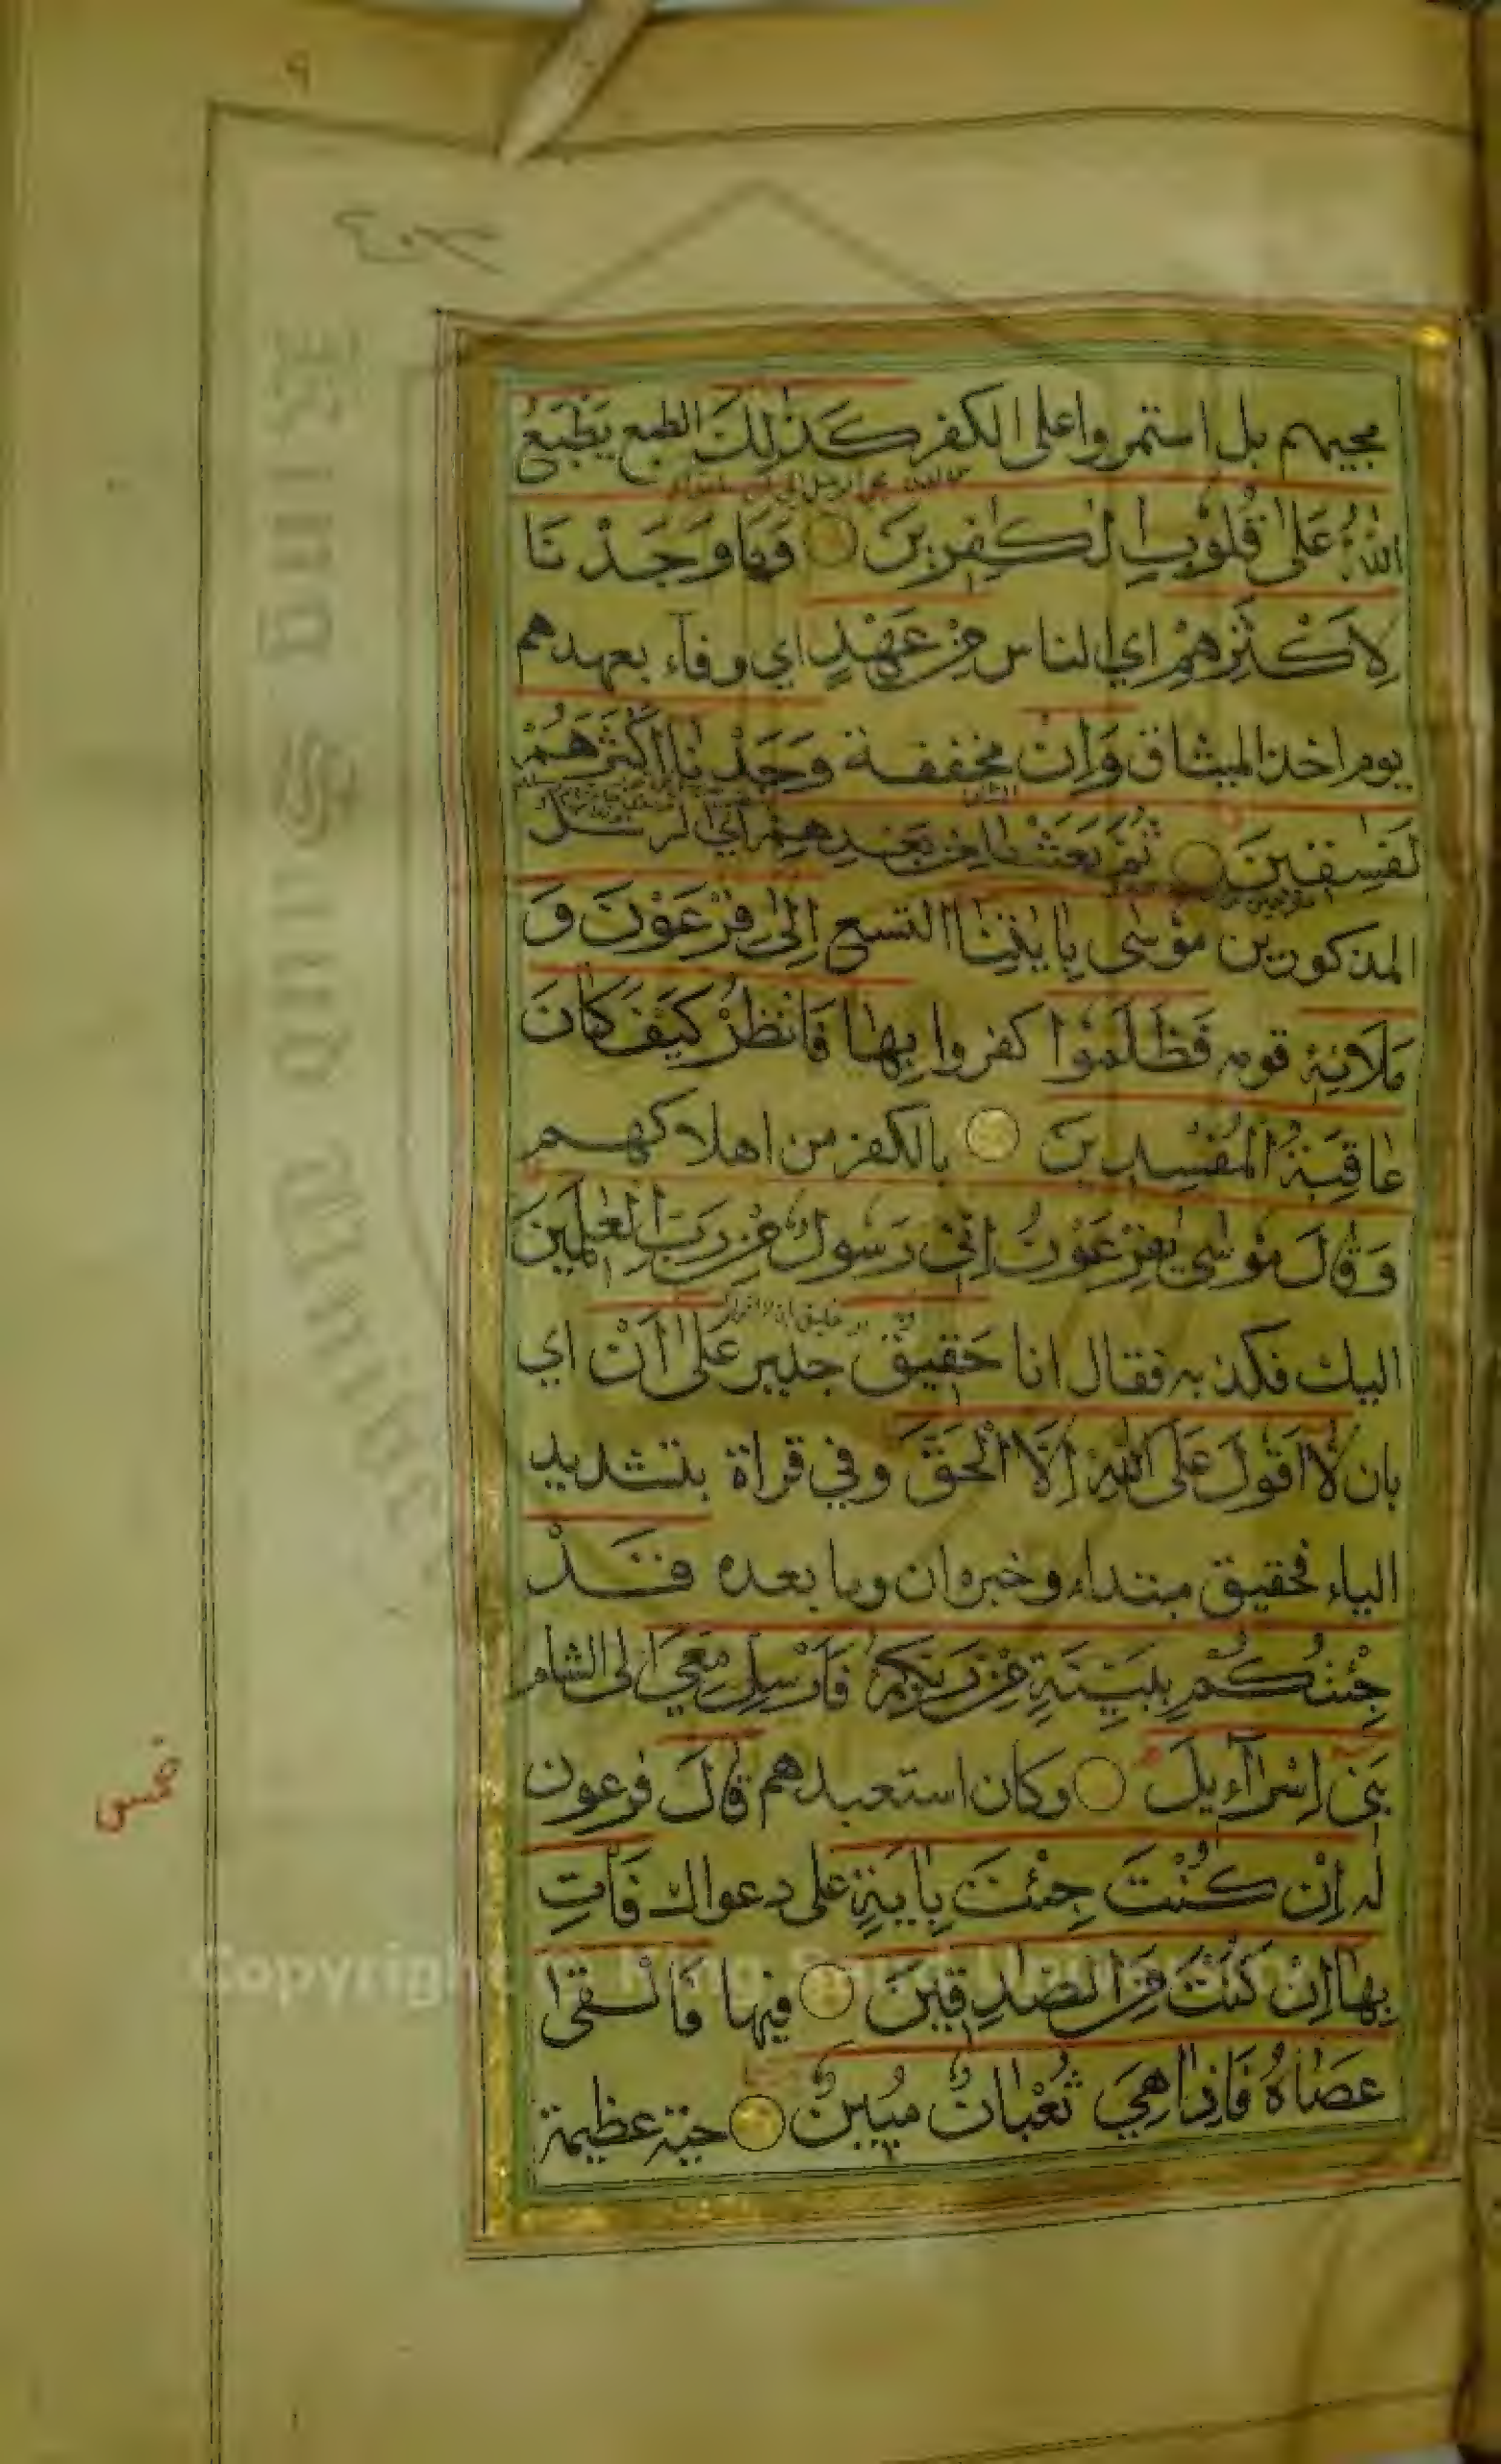 ٩
مجيهم بل استمروا على الكفر كَذٰلِكَ الطبع يَطْبَعُ
اللّٰهُ عَلٰى قُلُوْبِ الْكٰفِرِيْنَ وَمَا وَجَدْنَا
لِاَكْثَرِهِمْ اي الناس مِنْ عَهْدٍ اي وفآء بعهدهم
يوم اخذ الميثاق وَاِنْ مخففة وَجَدْنَا اَكْثَرَهُمْ
لَفٰسِقِيْنَ ثُمَّ بَعَثْنَا مِنْ بَعْدِهِمْ اي الرسل
المذكورين مُوْسٰى بِاٰيٰتِنَا التسع اِلٰى فِرْعَوْنَ وَ
مَلَا۟ئِهٖ قومه فَظَلَمُوْا كفروا بِهَا فَانْظُرْ كَيْفَ كَانَ
عَاقِبَةُ الْمُفْسِدِيْنَ بالكفر من اهلاكهم
وَقَالَ مُوْسٰى يٰفِرْعَوْنُ اِنِّيْ رَسُوْلٌ مِنْ رَبِّ الْعٰلَمِيْنَ
اليك فكذبه فقال انا حَقِيْقٌ جدير عَلٰى اَنْ اي
بان لَّا اَقُوْلَ عَلَى اللّٰهِ اِلَّا الْحَقَّ وفي قراة بتشديد
الياء فحقيق مبتداء وخبره ان وما بعده قَدْ
جِئْتُكُمْ بِبَيِّنَةٍ مِنْ رَبِّكُمْ فَاَرْسِلْ مَعِيَ الى الشام
بَنِيْ اِسْرَآءِيْلَ وكان استعبدهم قَالَ فرعون
له اِنْ كُنْتَ جِئْتَ بِاٰيَةٍ على دعواك فَاْتِ
بِهَا اِنْ كُنْتَ مِنَ الصّٰدِقِيْنَ فيها فَاَلْقٰى
عَصَاهُ فَاِذَا هِيَ ثُعْبَانٌ مُبِيْنٌ حية عظيمة
Copyright © King Saud University